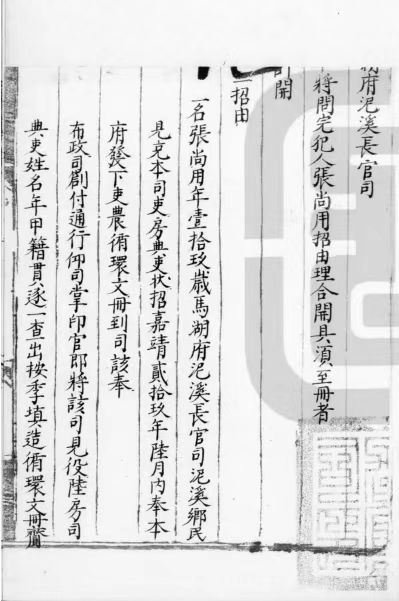 湖府泥溪長官司
將問完犯人張尚用招由理合開具須至冊者
計開
一招由
一名張尚用年壹拾玖歲馬湖府泥溪長官司泥溪鄉民
見充本司吏房典吏狀招嘉靖貳拾玖年陸月內奉本
府發下吏農循環文冊到司該奉
布政司劄付通行仰司掌印官即將該司見役陸房司
典吏姓名年甲籍貫逐一查出按季填造循環文冊齎